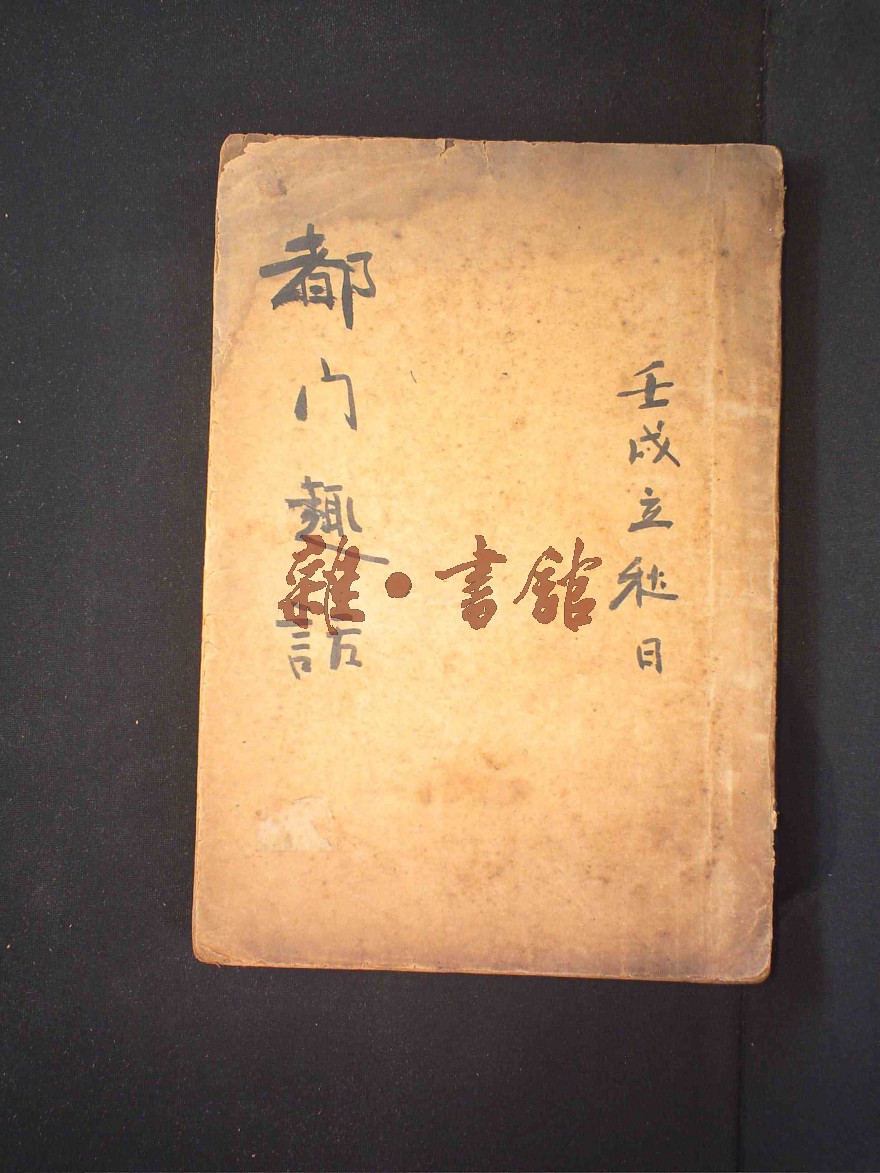 壬戌立秋日
都门趣話
雜·書館